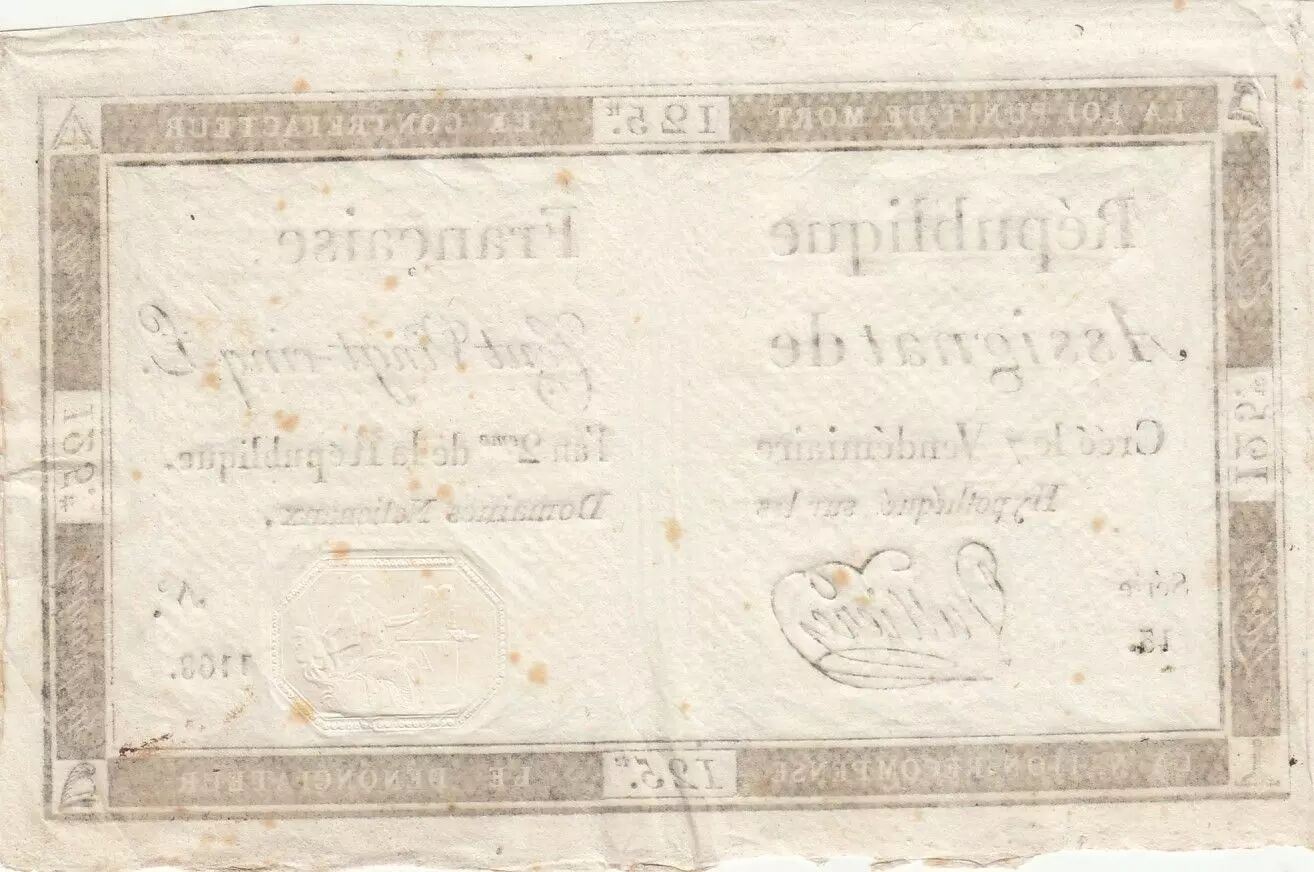 LA LOI PUNIT DE MORT 125.₶ LE CONTREFACTEUR
République Française.
Assignat de Cent Vingt-cinq L.
125.₶
125.₶
Créé le 7 Vendémiaire l'an 2.me de la République.
Hypothéqué sur les Domaines Nationaux.
Série
15.
N.º
1168.
LA NATION RECOMPENSE 125.₶ LE DÉNONCIATEUR